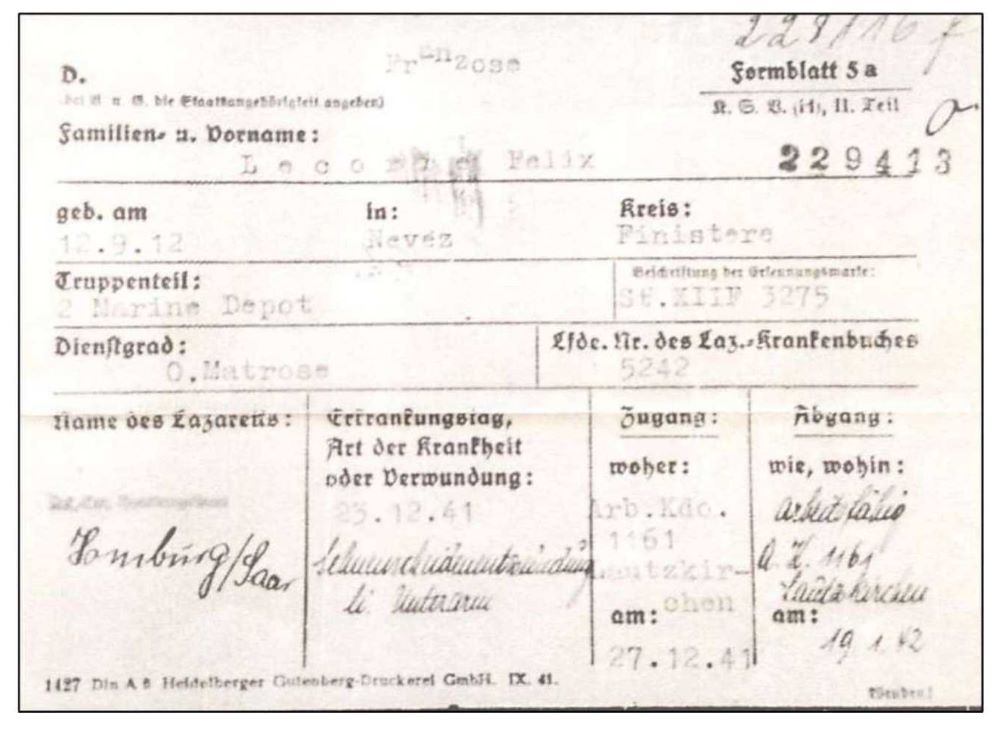 228/16 F
Franzose
D.
(bei B u. G. die Staatsangehörigkeit angeben)
Formblatt 5 a
K. S. V. (H), II. Teil
Familien- u. Vorname:
Lecorne Felix
229413
geb. am in: Kreis:
12.9.12 Nevéz Finistere
Truppenteil: Beschriftung der Erkennungsmarke:
2 Marine Depot St.XIIF 3275
Dienstgrad: Lfde. Nr. des Laz.-Krankenbuches
O.Matrose 5242
Name des Lazaretts:
Homburg/Saar
Erkrankungstag,
Art der Krankheit
oder Verwundung:
25.12.41
Sehnenscheidenentzündung
li. Unterarm
Zugang:
woher:
Arb.Kdo.
1161
Lautzkir-
chen
am:
27.12.41
Abgang:
wie, wohin:
arbeitsfähig
A. K. 1161
Lautzkirchen
am:
19.1.42
1427 Din A 6 Heidelberger Gutenberg-Druckerei GmbH. IX. 41.
Wenden!